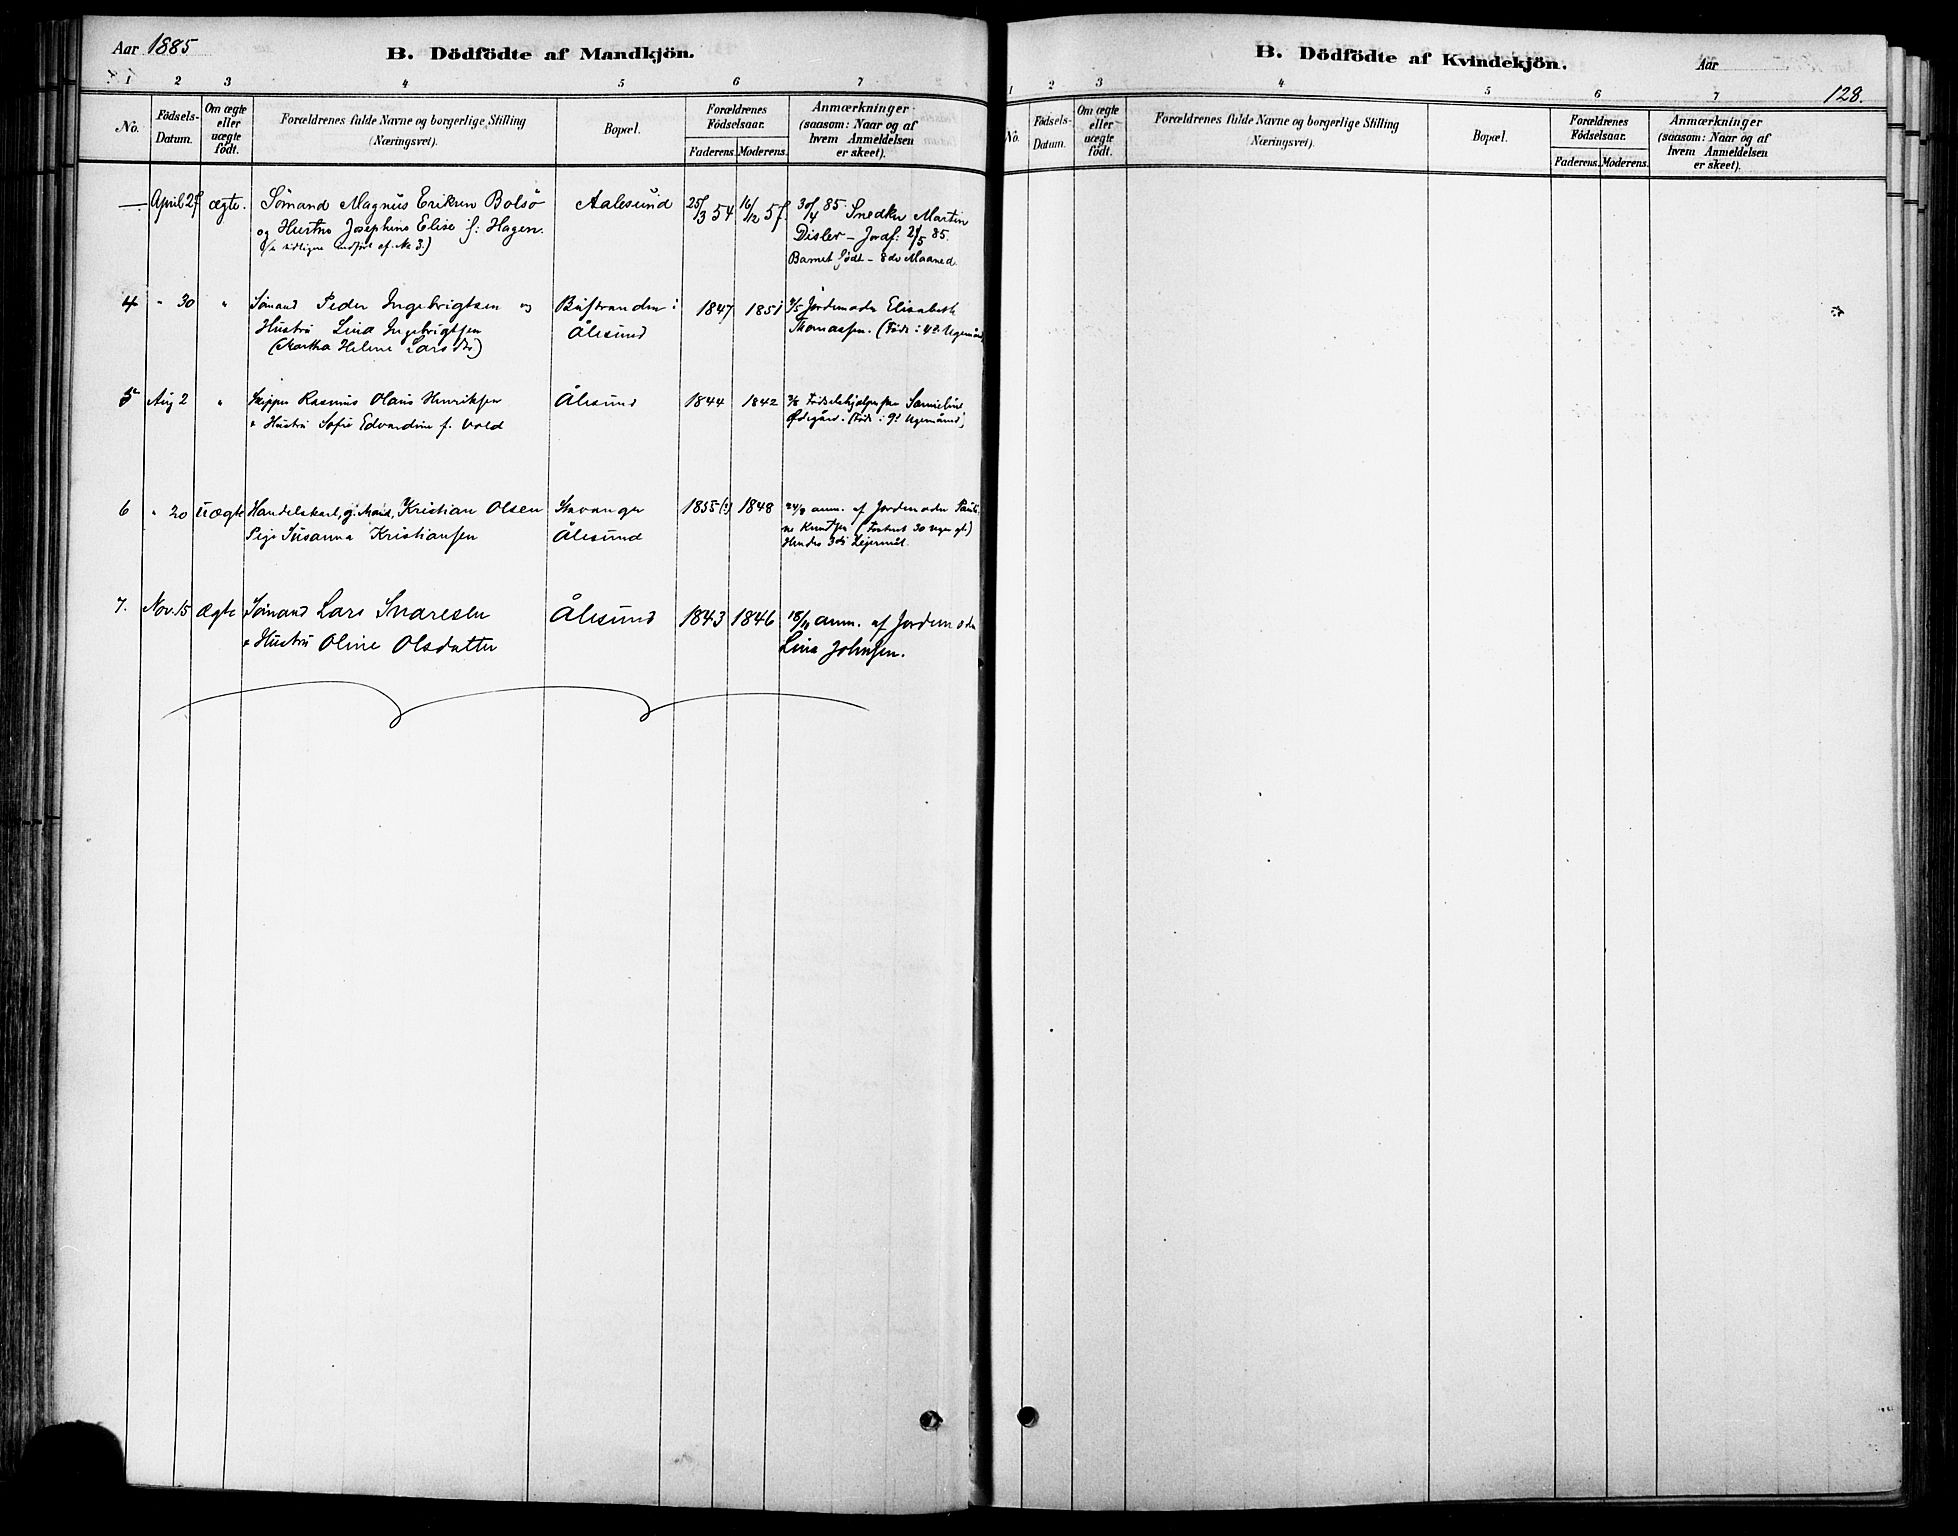 Aar 1885
B. Dödfödte af Mandkjön.
1 2 3 4 5 6 7
No.
Födsels-
Datum.
Om ægte
eller
uægte
født.
Forældrenes fulde Navne og borgerlige Stilling
(Næringsvei).
Bopæl.
Forældrenes
Födselsaar.
Faderens. Moderens.
Anmærkninger
(saasom: Naar og af
hvem Anmeldelsen
er skeet).
— April ægte. Sømand Magnus Eriksen Bolsø Aalesund 25/3 54 16/12 30/4 85 Snedker Martin
og Hustru Josephine Elise f: Hagen. Disler – Jordf: 21/5 85.
Barnet født – 8de Maaned
4 " 30 " Sømand Peder Ingebrigtsen og Bufstranden i 1847 1851 Jordemoder Elisabeth
Hustru Lina Ingebrigtsen Ålesund Thomassen.
(Martha Helene Larsdtr)
5 Aug 2 " Skipper Rasmus Olaus Henriksen Ålesund 1844 1842
& Hustru Sofie Edvardine f. Vold Ødegård.
6 " 20 uægte Handelskarl, Kristian Olsen Stavanger 1855 (?) 1848 anm. af Jordemoder Pauli-
Pige Susanna Kristiansen Ålesund ne Knutsen
Hendes 3die Leiermål.
7. Nov. 15 Ægte Sømand Lars Ålesund 1843 1846 18/11 anm. af Jordemoder
& Hustru Oline Olsdatter Lina Johnsen.
B. Dödfödte af Kvindekjön.
Aar
128.
1 2 3 4 5 6 7
No.
Födsels-
Datum.
Om ægte
eller
uægte
født.
Forældrenes fulde Navne og borgerlige Stilling
(Næringsvei).
Bopæl.
Forældrenes
Födselsaar.
Faderens. Moderens.
Anmærkninger
(saasom: Naar og af
hvem Anmeldelsen
er skeet).